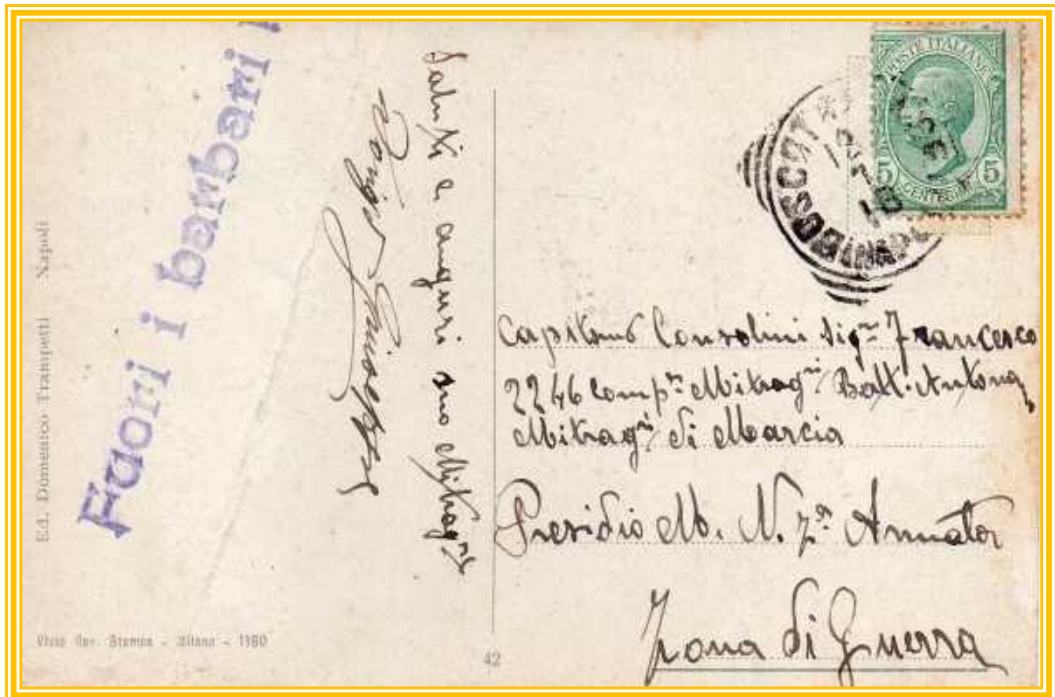 Fuori i barbari !
Ed. Domenico Trampetti Napoli
Saluti e auguri suo Mitragre
Giuseppe
POSTE ITALIANE
5 CENTESIMI 5
BOSCOTR
(NAPOLI)
Capitano Consolini Sigr Francesco
2246 Compa Mitragri Batt. Autono
Mitragri di Marcia
Presidio M. N. 7a Armata
Zona di Guerra
Visto Rev. Stampa - Milano - 1380
42